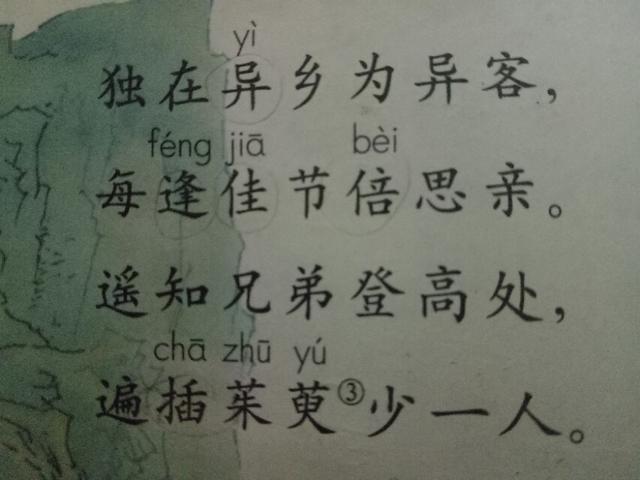 yì
独在异乡为异客，
féng jiā bèi
每逢佳节倍思亲。
遥知兄弟登高处，
chā zhū yú
遍插茱萸③少一人。